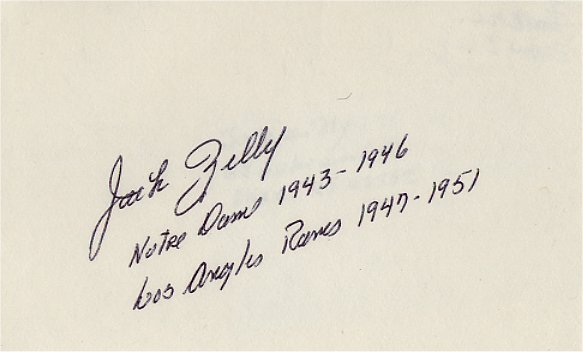 Jack Zilly
Notre Dame 1943-1946
Los Angles Rams 1947-1951